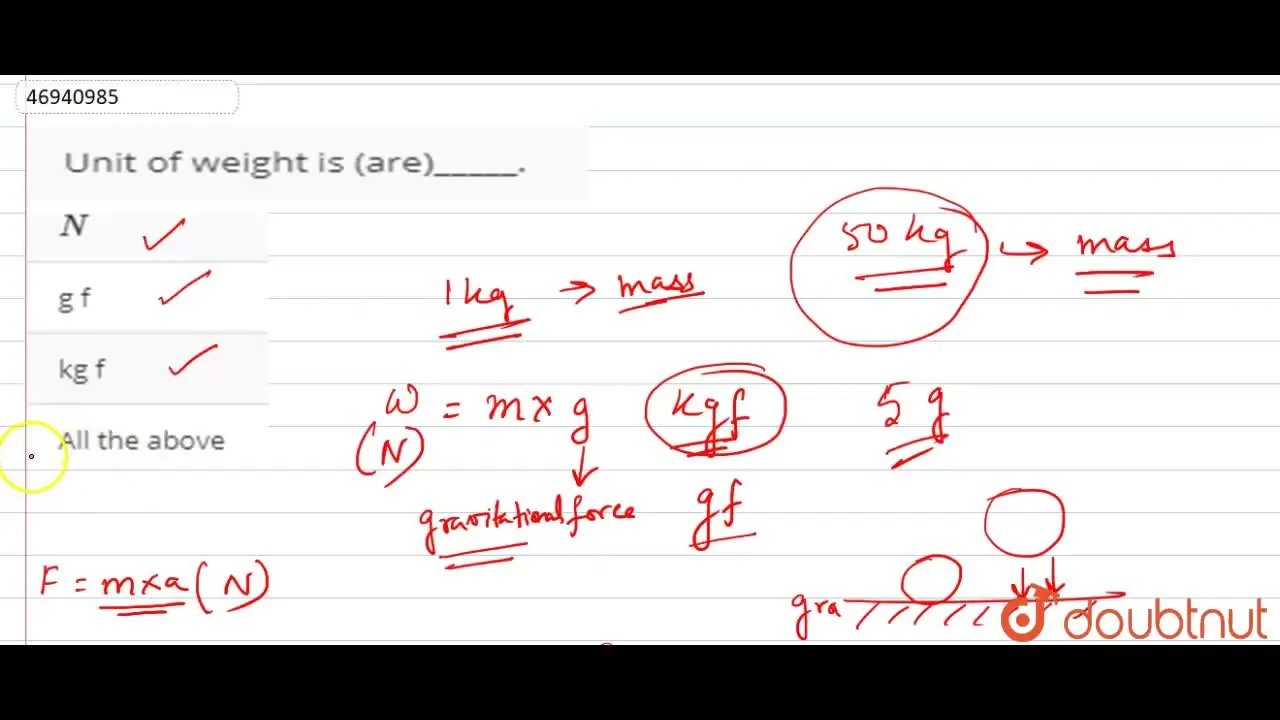 46940985
Unit of weight is (are)_____.
N
g f
kg f
All the above
1kg → mass
50 kg → mass
W = m x g
(N)
gravitational force
kgf
gf
5 g
F = m x a (N)
gra
doubtnut